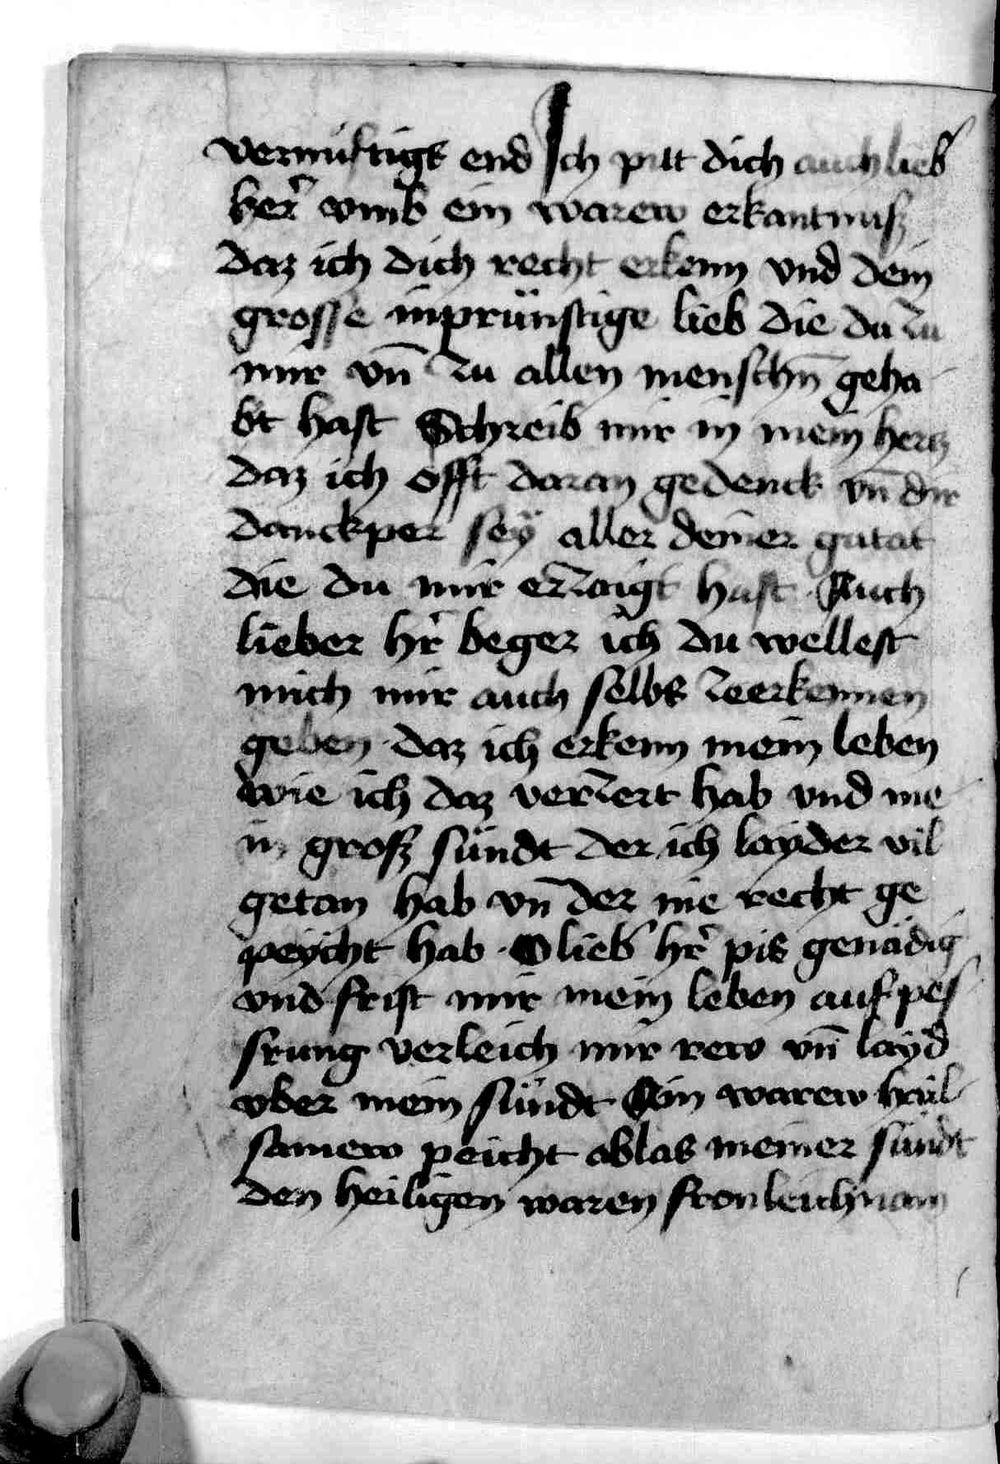 vernüftigs end Ich pitt dich auch lieb
her͛ vmb ein warew erkantnuß
daz ich dich recht erkenn vnd dein
grosse inprünstige lieb die du zu
mir vn̄ zu allen menschn̄ geha
bt hast Schreib mir in mein hertz
daz ich offt daran gedenck vn̄ dir
danckper seÿ aller deiner gutat
die du mir erzaigt hast · Auch
lieber hr͛ beger ich du wellest
mich mir auch selbs zeerkennen
geben · daz ich erkenn mein leben
wie ich daz verzert hab vnd me
in groß sündt der ich layder vil
getan hab vn̄ der nie recht ge
peÿcht hab · O lieb͛ hr͛ pis genädig
vnd frist mir mein leben auf pes
srung verleich mir rew vn̄ layd
vber mein sündt Ein warew hail
samew peicht ablas meiner sündt
den heiligen waren fronleichnam